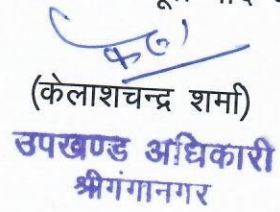 (केलाशचन्द्र शर्मा)
उपखण्ड अधिकारी
श्रीगंगानगर